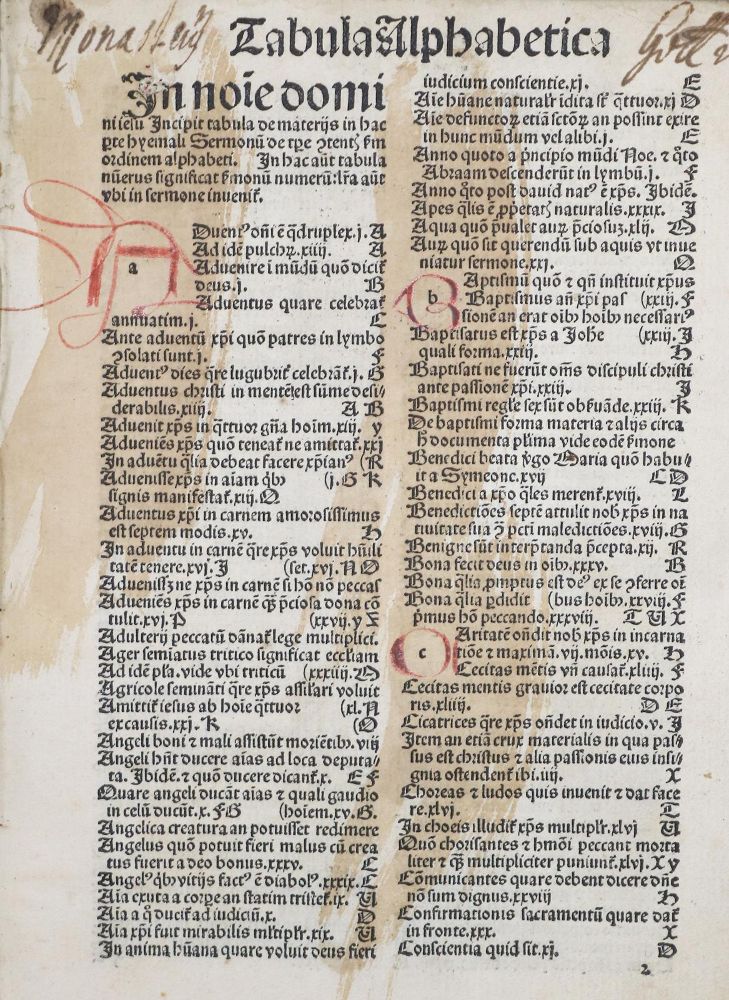 Monasterij
Tabula Alphabetica
Gott
In noīe domi
ni iesu Incipit tabula de materijs in hac
ꝑte hyemali Sermonū de tꝑe ꝯtentꝭ ẜm
ordinem alphabeti. In hac aūt tabula
nūerus significat ẜmonū numerū: lr̄a aūt
vbi in sermone inuenit̄.
ADuentꝰ oīm ē q̄druplex.j. A
a
Ad idē pulchꝝ.xiiij. A
Aduenire ī mūdū quō dicit̄
deus.j. B
Aduentus quare celebrat̄
annuatim.j. C
Ante aduentū xp̄i quō patres in lymbo
ꝯsolati sunt.j. F
Aduentꝰ dies q̄re lugubrit̄ celebrāt̄.j. G
Aduentus christi in mentē est sūme desi-
derabilis.xiij. A B
Aduenit xp̄s in q̄ttuor gn̄a hoīm.xiij. y
Adueniēs xp̄s quō teneat̄ ne amittat̄.xxj
In aduētu q̄lia debeat facere xp̄ianꝰ (R
Aduenisse xp̄s in aīam qͥbꝰ (j. G K
signis manifestat̄.xij. O
Aduentus xp̄i in carnem amorosissimus
est septem modis.xv. H
In aduentu in carnē q̄re xp̄s voluit hūili
tatē tenere.xvj. J (set.xvj. N O
Aduenisszne xp̄s in carnē si hō nō peccas
Adueniēs xp̄s in carnē q̄ꝫ p̄ciosa dona cō
tulit.xvj. P (xxvij. y Z
Adulterij peccatū dānat̄ lege multiplici.
Ager semiatus tritico significat eccl̄iam
Ad idē pl̄a. vide vbi triticū (xxxiiij. O
Agricole seminanti q̄re xp̄s assilari voluit
Amittit̄ iesus ab hoīe q̄ttuor (xl. N
ex causis.xxj. K (O
Angeli boni & mali assistūt moriētibꝰ. viij
Angeli hn̄t ducere aīas ad loca deputa-
ta. Ibidē. & quō ducere dicant̄.x. E F
Quare angeli ducāt aīas & quali gaudio
in celū ducūt.x. F G (hoīem.xv. G.
Angelica creatura an potuisset redimere
Angelus quō potuit fieri malus cū crea
tus fuerit a deo bonus.xxxv. C
Angelꝰ qͥbꝰ vitijs factꝰ ē diabolꝰ.xxxix. C
Aīa exuta a corꝑe an statim tristet̄.ix. U
Aīa a q̊ ducit̄ ad iudiciū.x. D
Aīa xp̄i fuit mirabilis ml̄tipl̄r.xix. U
In anima hūana quare voluit deus fieri
iudicium conscientie.xj. E
Aīe hūane naturalr̄ īdita st̄ q̄ttuor.xj D
Aīe defunctoꝝ etiā sctōꝝ an possint exire
in hunc mūdum vel alibi.j. E
Anno quoto a p̄ncipio mūdi Noe. & q̊to
Abraam descenderūt in lymbū.j. F
Anno q̊to post dauid natꝰ ē xp̄s. Ibidē.
Apes q̄lis ē ꝓp̄etatꝭ naturalis.xxxix. J
Aqua quō p̄ualet auꝝ p̄ciosuꝫ.xlij. O
Auꝝ quō sit querendū sub aquis vt inue
niatur sermone.xxj. Q
BAptismū quō & qn̄ instituit xp̄us
b
Baptismus an̄ xp̄i pas (xxiij. F
sionē an erat oībꝰ hoībꝰ necessariꝰ
Baptisatus est xp̄s a Johē (xxiij. J
quali forma.xxiij. H
Baptisati ne fuerūt oms̄ discipuli christi
ante passionē xp̄i.xxiij. J
Baptismi regle sex sūt obẜuāde.xxiij. K
De baptismi forma materia & alijs circa
h̄ documenta pl̄ima vide eodē ẜmone
Benedici beata v̓go Maria quō habu-
it a Symeone.xvij C D
Benedici a xp̄o q̄les merent̄.xviij. L
Benedictiōes septē attulit nob̄ xp̄s in na
tiuitate sua ꝯ̄ pctī maledictiōes.xviij. G
Benigne sūt interp̄tanda p̄cepta.xij. R
Bona fecit deus in oībꝰ.xxxv. B
Bona q̄lia ꝓmptus est deꝰ ex se ꝯferre oī
Bona q̄lia ꝑdidit (bus hoībꝰ.xxviij. F
p̄mus hō peccando.xxxviij. T U X
CAritatē on̄dit nob̄ xp̄s in incarna
c
tiōe & maximā.vij. mōis.xv. H
Cecitas mētis vn̄ causat̄.xliiij. F
Cecitas mentis grauior est cecitate corpo
ris.xliiij. D E
Cicatrices q̄re xp̄s on̄det in iudicio.v. J
Item an etiā crux materialis in qua pas-
sus est christus & alia passionis eius insi-
gnia ostendent̄ ibi.iij. X
Choreas & ludos quis inuenit & dat face
re.xlvj. T
In choeis illudit̄ xp̄s multipl̄r.xlvj U
Quō chorisantes & hmōi peccant morta
liter & q̄ꝫ multipliciter puniunt̄.xlvj. X y
Cōmunicantes quare debent dicere dn̄e
nō sum dignus.xxviij H
Confirmationis sacramentū quare dat̄
in fronte.xxx. X
Conscientia quid sit.xj. D
2